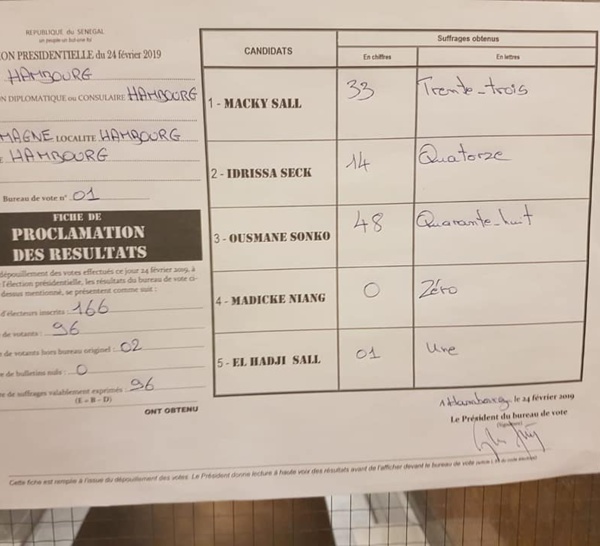 REPUBLIQUE du SENEGAL
un peuple un but une foi
ON PRESIDENTIELLE du 24 février 2019
HAMBOURG
ON DIPLOMATIQUE ou CONSULAIRE HAMBOURG
MAGNE LOCALITE HAMBOURG
HAMBOURG
Bureau de vote n° 01
FICHE DE
PROCLAMATION
DES RESULTATS
dépouillement des votes effectués ce jour 24 février 2019, à
l'élection présidentielle, les résultats du bureau de vote ci-
dessus mentionné, se présentent comme suit :
d'électeurs inscrits : 166
de votants : 96
de votants hors bureau originel : 02
de bulletins nuls : 0
de suffrages valablement exprimés : 96
(E = B - D)
ONT OBTENU
CANDIDATS
Suffrages obtenus
En chiffres
En lettres
1 - MACKY SALL 33 Trente-trois
2 - IDRISSA SECK 14 Quatorze
3 - OUSMANE SONKO 48 Quarante-huit
4 - MADICKE NIANG 0 Zéro
5 - EL HADJI SALL 01 Une
A Hambourg, le 24 février 2019
Le Président du bureau de vote
(Signature)
Cette fiche est remplie à l'issue du dépouillement des votes. Le Président donne lecture à haute voix des résultats avant de l'afficher devant le bureau de vote